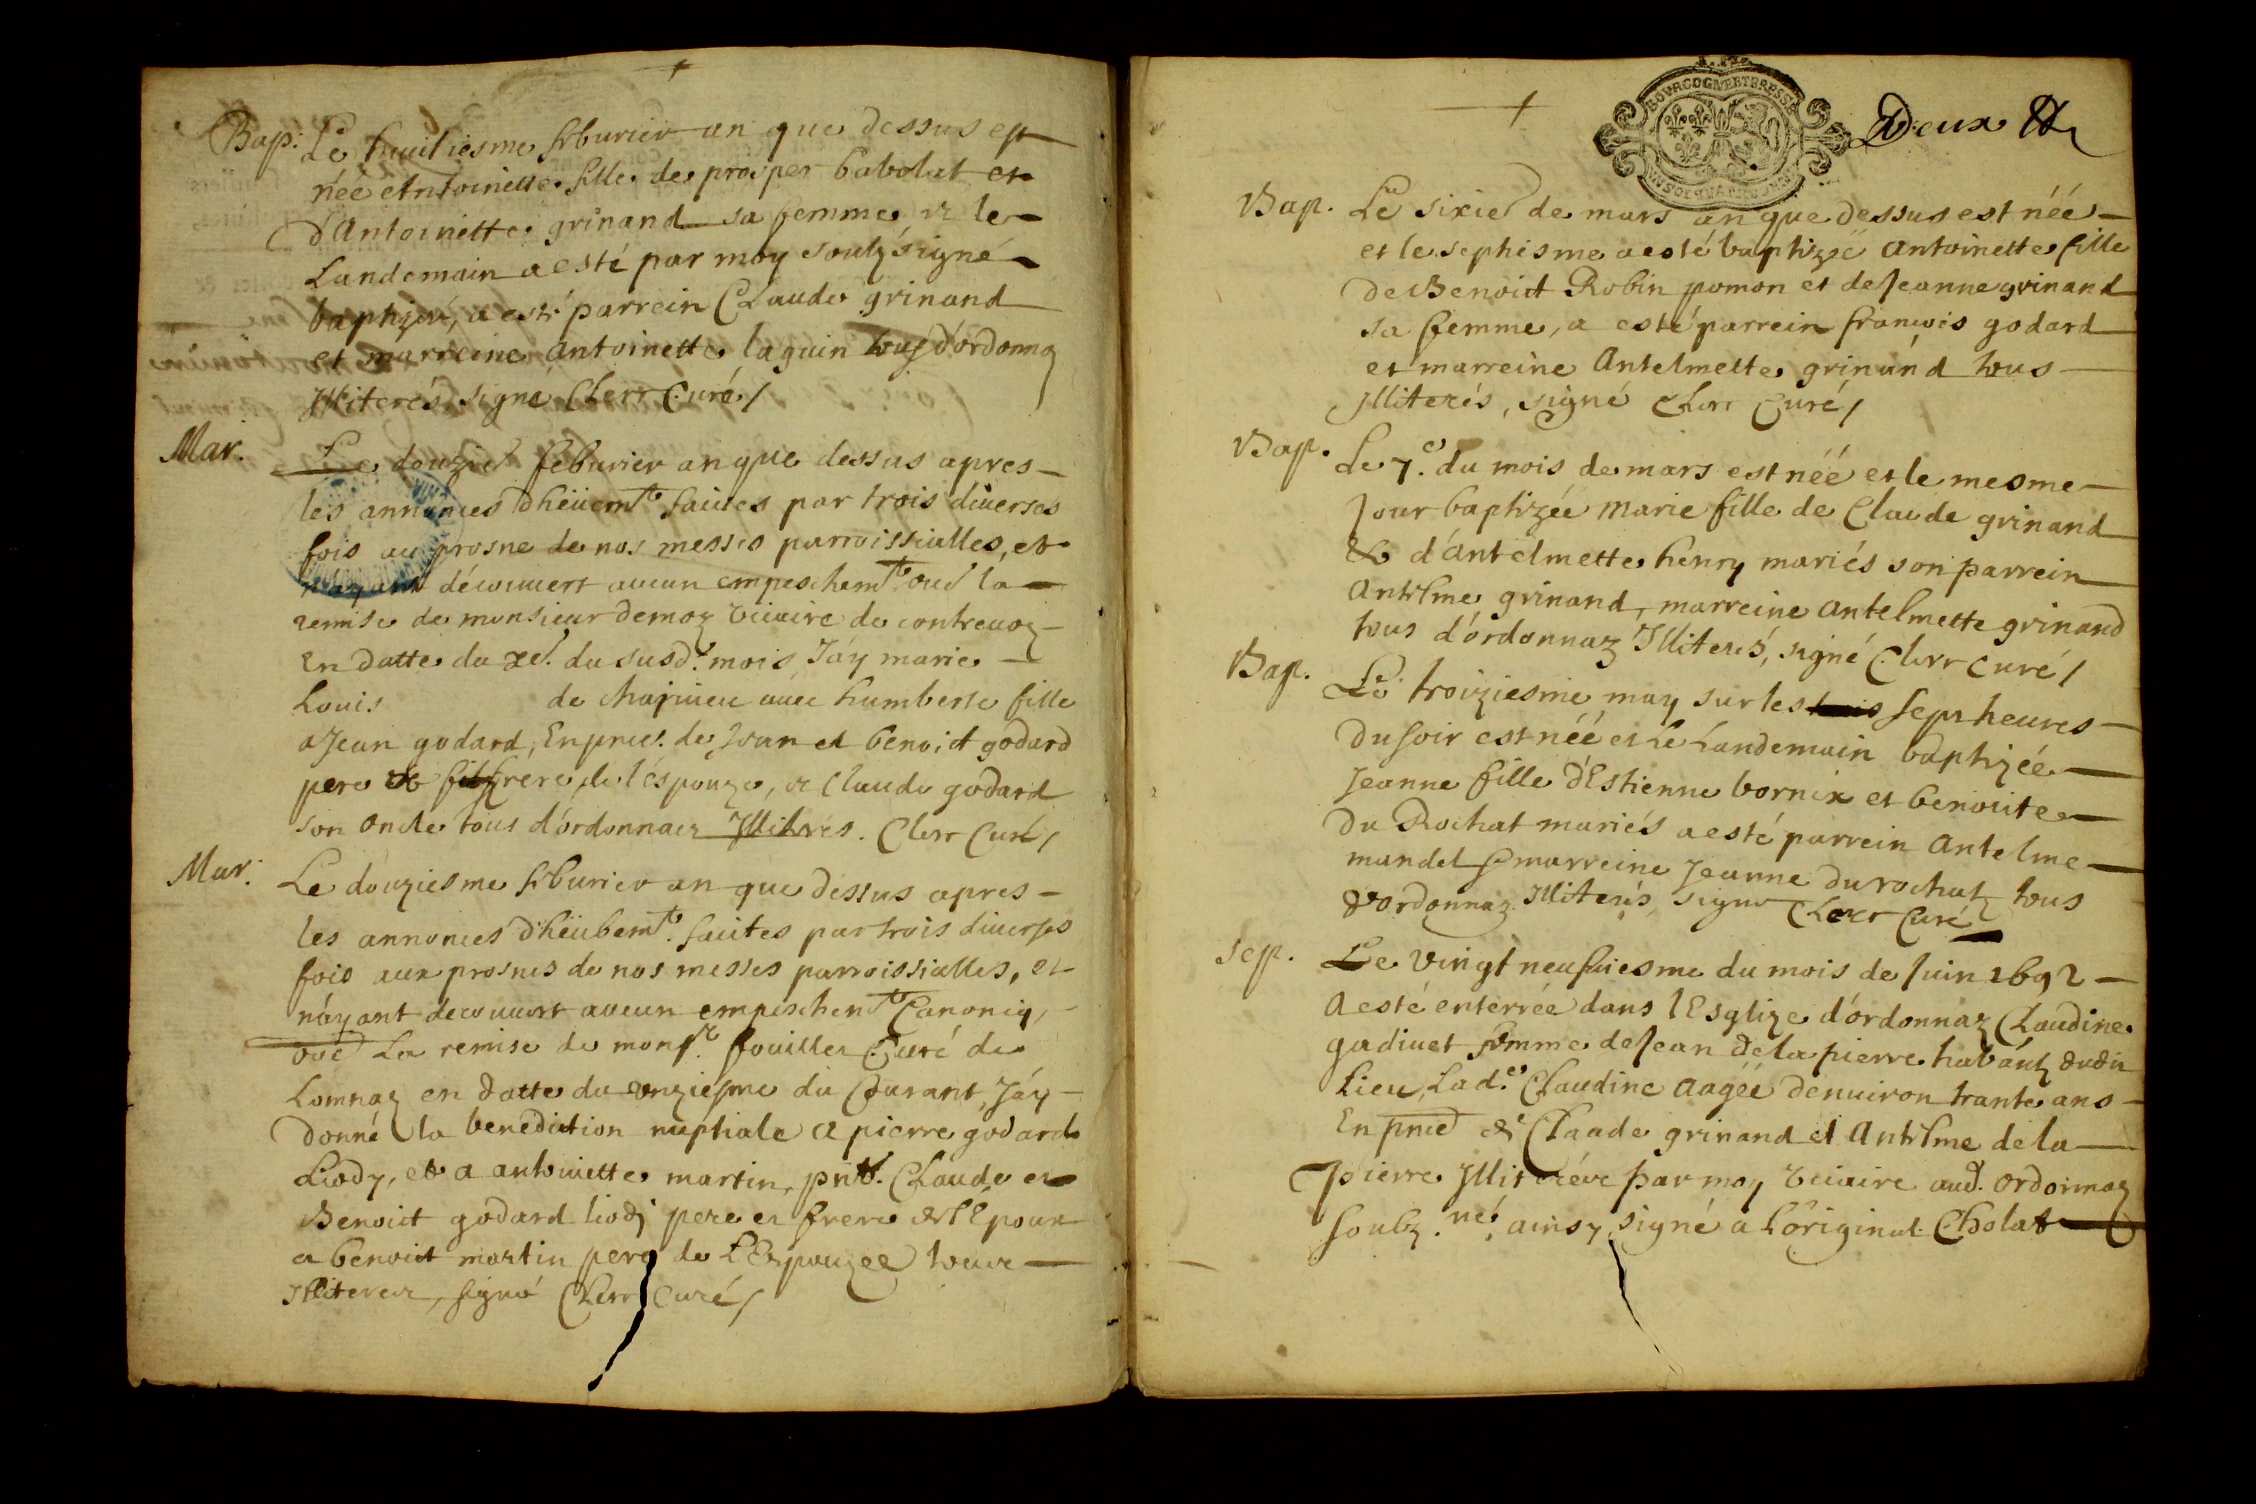 Bap: Le huictiesme feburier an que dessus est
née Antoinette fille de prosper babolat et
d'Antoinette grinand sa femme & le
Landemain a esté par moy soubsigné
baptizée, a esté parrein Claude grinand
et marreine Antoinette laguin tous d'ordonnaz
Illiterés, signé Clerc Curé /
Mar. Le douzie feburier an que dessus apres
les annonces dheüemt faites par trois diverses
fois au prosne de nos messes parroissialles, et
n'ayant découuert aucun empeschemt oue la
remise de monsieur demoz vicaire de contreuoz
En datte du xe. du susd. mois J'ay marie
Louis de chajuieu auec humberte fille
a Jean godard, En pnce. de Jean et benoict godard
pere & frere de l'espouze, & Claude godard
son oncle tous d'ordonnaz Illiterés. Clerc Curé /
Mar. Le douziesme feburier an que dessus apres
les annonces dheübemt. faites par trois diuerses
fois aux prosnes de nos messes parroissialles, et
n'ayant decouuert aucun empeschemt Canoniq,
oüe La remise de monsr. fouiller Curé de
Lomnaz en datte du onziesme du Courant, J'ay
donné la benediction nuptiale a pierre godard
Liody, et a antoinette martin, pnts. Claude et
Benoict godard liody pere et frere de l'Epoux
et benoict martin pere de L'Espouzee tous
Illiterez, signé Clerc Curé /
BOURGOGNE ET BRESSE
Deux
Bap. Le sixie de mars an que dessus est née
et le sephisme a esté baptizée Antoinette fille
de Benoict Robin pomon et de Jeanne grinand
sa femme, a esté parrein françois godard
et marreine Antelmette grinand tous
Illiterés, signé Clerc Curé /
Bap. Le 7e. du mois de mars est née et le mesme
Jour baptizée marie fille de Claude grinand
& d'Antelmette henry mariés son parrein
Antelme grinand, marreine antelmette grinand
tous d'ordonnaz Illiterés, signé Clerc curé /
Bap. Le troiziesme may sur les sept heures
du soir est née et Le Landemain baptizée
Jeanne fille d'Estienne bornix et benoite
du Rochat mariés a esté parrein Antelme
mandel & marreine Jeanne du rochat tous
d'ordonnaz Illiterés, signé Clerc Curé
Sep. Le vingt neufuiesme du mois de Juin 1692
A esté enterrée dans l'Esglize d'ordonnaz Claudine
gadiuet femme de Jean de la pierre habantz dudit
Lieu, Lad.e Claudine aagée denuiron trante ans
En pnce de Claude grinand et Antelme de la
pierre Illiterés par moy vicaire aud. ordonnaz
soubz.né, ainsy signé a L'original Cholat